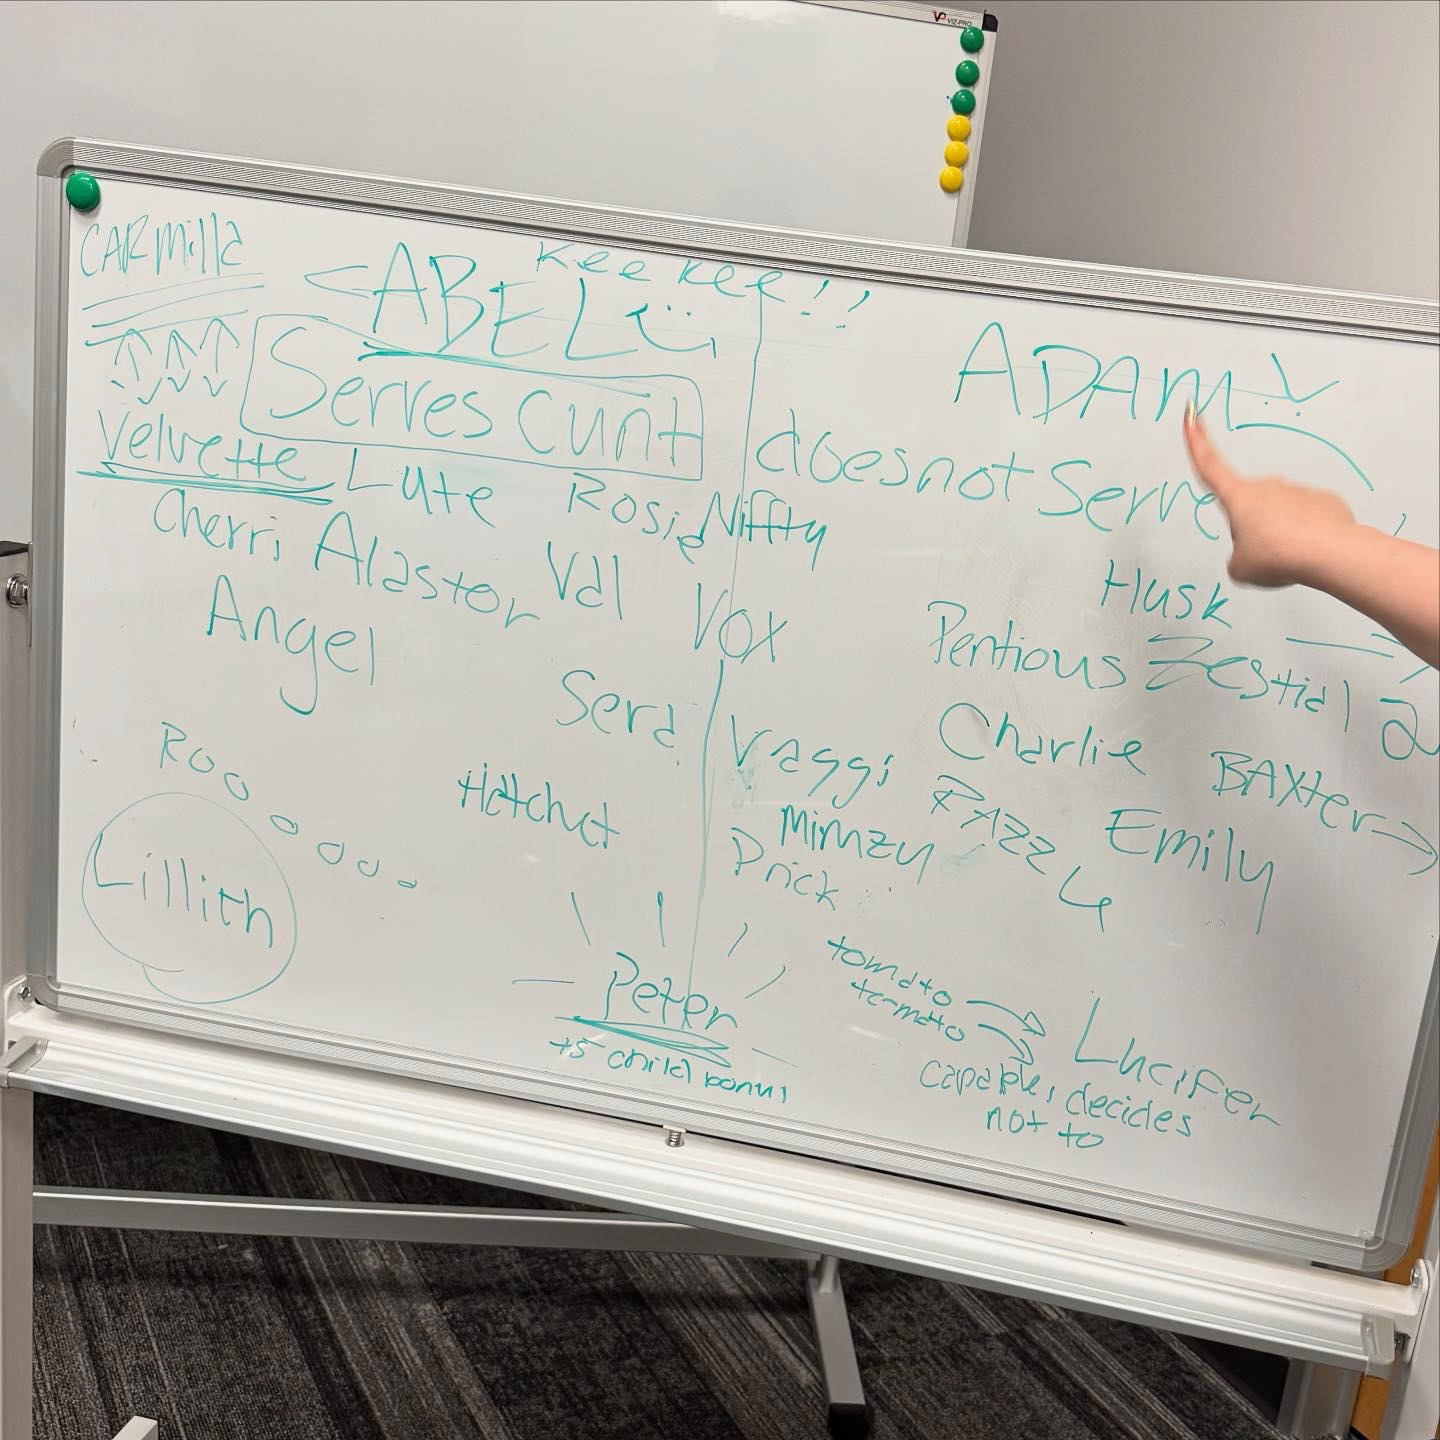 VIZ-PRO
CARmilla
<ABEL
Kee Kee!!
ADAM
Serves Cunt
does not Serve
Velvette Lute Rosie Niffty
Cherri Alastor Val Vox
Angel
Husk
Pentious Zestial
Sera Vaggi Charlie BAXter
Roo
Hatchet
Mimzy RAZZ Emily
Prick
Lillith
Peter
+5 child bonus
tomato
tomato
Lucifer
capable, decides
not to